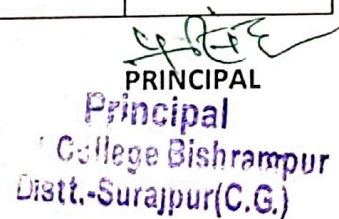 PRINCIPAL
Principal
College Bishrampur
Distt.-Surajpur(C.G.)